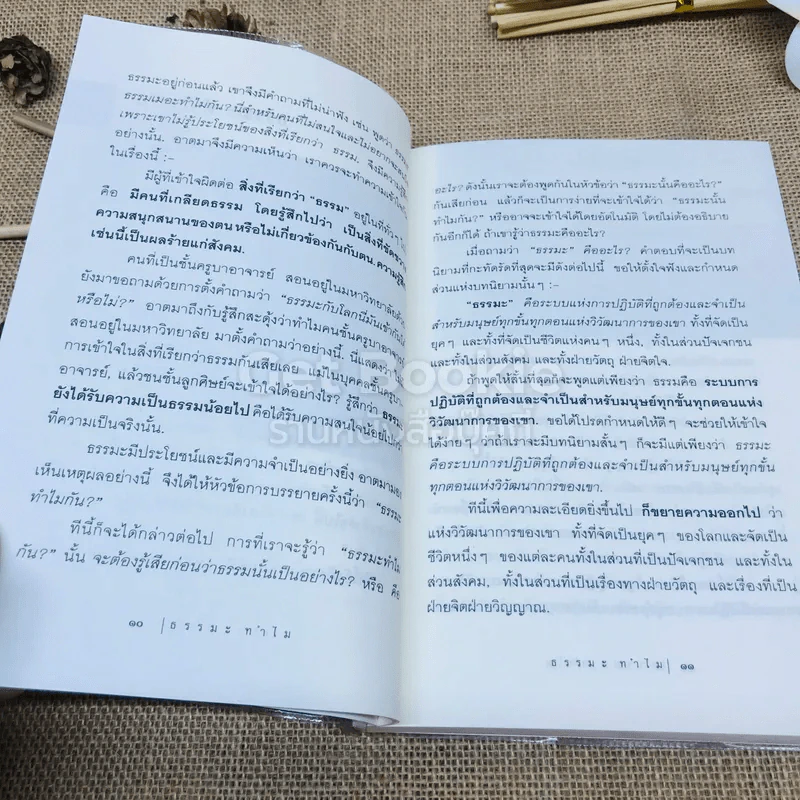 ธรรมะอยู่ก่อนแล้ว เขาจึงมีคำถามที่ไม่น่าฟัง เช่น พูดว่า
ธรรมเมอะทำไมกัน? นี่สำหรับคนที่ไม่สนใจและไม่อยากจะสน
เพราะเขาไม่รู้ประโยชน์ของสิ่งที่เรียกว่า ธรรม. จึงมีความ
อย่างนั้น. อาตมาจึงมีความเห็นว่า เราควรจะทำความเข้าใจ
ในเรื่องนี้ :–
มีผู้ที่เข้าใจผิดต่อ สิ่งที่เรียกว่า “ธรรม” อยู่ในที่ทั่วๆ ไป
คือ มีคนที่เกลียดธรรม โดยรู้สึกไปว่า เป็นสิ่งที่ขัดขวาง
ความสนุกสนานของตน หรือไม่เกี่ยวข้องกันกับตน. ความรู้สึก
เช่นนี้เป็นผลร้ายแก่สังคม.
คนที่เป็นชั้นครูบาอาจารย์ สอนอยู่ในมหาวิทยาลัย
ยังมาขอถามด้วยการตั้งคำถามว่า “ธรรมะกับโลกนี้มันเข้ากันได้
หรือไม่?” อาตมาถึงกับรู้สึกสะดุ้งว่าทำไมคนชั้นครูบาอา
สอนอยู่ในมหาวิทยาลัย มาตั้งคำถามว่าอย่างนี้. นี่แสดงว่า
การเข้าใจในสิ่งที่เรียกว่าธรรมกันเสียเลย แม้ในบุคคลชั้นครูบา
อาจารย์, แล้วชนชั้นลูกศิษย์จะเข้าใจได้อย่างไร? รู้สึกว่า ธรรม
ยังได้รับความเป็นธรรมน้อยไป คือได้รับความสนใจน้อยไปกว่า
ที่ความเป็นจริงนั้น.
ธรรมะมีประโยชน์และมีความจำเป็นอย่างยิ่ง อาตมามอง
เห็นเหตุผลอย่างนี้ จึงได้ให้หัวข้อการบรรยายครั้งนี้ว่า “ธรรมะ
ทำไมกัน?”
ทีนี้ก็จะได้กล่าวต่อไป การที่เราจะรู้ว่า “ธรรมะทำไม
กัน?” นั้น จะต้องรู้เสียก่อนว่าธรรมนั้นเป็นอย่างไร? หรือ คือ
๑๐ | ธรรมะ ทำไม
อะไร? ดังนั้นเราจะต้องพูดกันในหัวข้อว่า “ธรรมะนั้นคืออะไร?”
กันเสียก่อน แล้วก็จะเป็นการง่ายที่จะเข้าใจได้ว่า “ธรรมะนั้น
ทำไมกัน?” หรืออาจจะเข้าใจได้โดยอัตโนมัติ โดยไม่ต้องอธิบาย
กันอีกก็ได้ ถ้าเขารู้ว่าธรรมะคืออะไร?
เมื่อถามว่า “ธรรมะ” คืออะไร? คำตอบที่จะเป็นบท
นิยามที่กะทัดรัดที่สุดจะมีดังต่อไปนี้ ขอให้ตั้งใจฟังและกำหนด
ส่วนแห่งบทนิยามนั้นๆ :–
“ธรรมะ” คือระบบแห่งการปฏิบัติที่ถูกต้องและจำเป็น
สำหรับมนุษย์ทุกขั้นทุกตอนแห่งวิวัฒนาการของเขา ทั้งที่จัดเป็น
ยุคๆ และทั้งที่จัดเป็นชีวิตแห่งคนๆ หนึ่ง, ทั้งในส่วนปัจเจกชน
และทั้งในส่วนสังคม และทั้งฝ่ายวัตถุ ฝ่ายจิตใจ.
ถ้าพูดให้สั้นที่สุดก็จะพูดแต่เพียงว่า ธรรมคือ ระบบการ
ปฏิบัติที่ถูกต้องและจำเป็นสำหรับมนุษย์ทุกขั้นทุกตอนแห่ง
วิวัฒนาการของเขา. ขอได้โปรดกำหนดให้ดีๆ จะช่วยให้เข้าใจ
ได้ง่ายๆ ว่าถ้าเราจะมีบทนิยามสั้นๆ ก็จะมีแต่เพียงว่า ธรรมะ
คือระบบการปฏิบัติที่ถูกต้องและจำเป็นสำหรับมนุษย์ทุกขั้น
ทุกตอนแห่งวิวัฒนาการของเขา.
ทีนี้เพื่อความละเอียดยิ่งขึ้นไป ก็ขยายความออกไป ว่า
แห่งวิวัฒนาการของเขา ทั้งที่จัดเป็นยุคๆ ของโลกและจัดเป็น
ชีวิตหนึ่งๆ ของแต่ละคนทั้งในส่วนที่เป็นปัจเจกชน และทั้งใน
ส่วนสังคม, ทั้งในส่วนที่เป็นเรื่องทางฝ่ายวัตถุ และเรื่องที่เป็น
ฝ่ายจิตฝ่ายวิญญาณ.
ธรรมะ ทำไม | ๑๑
Get Bookie
ร้านหนังสือปุ๊กปุ๊